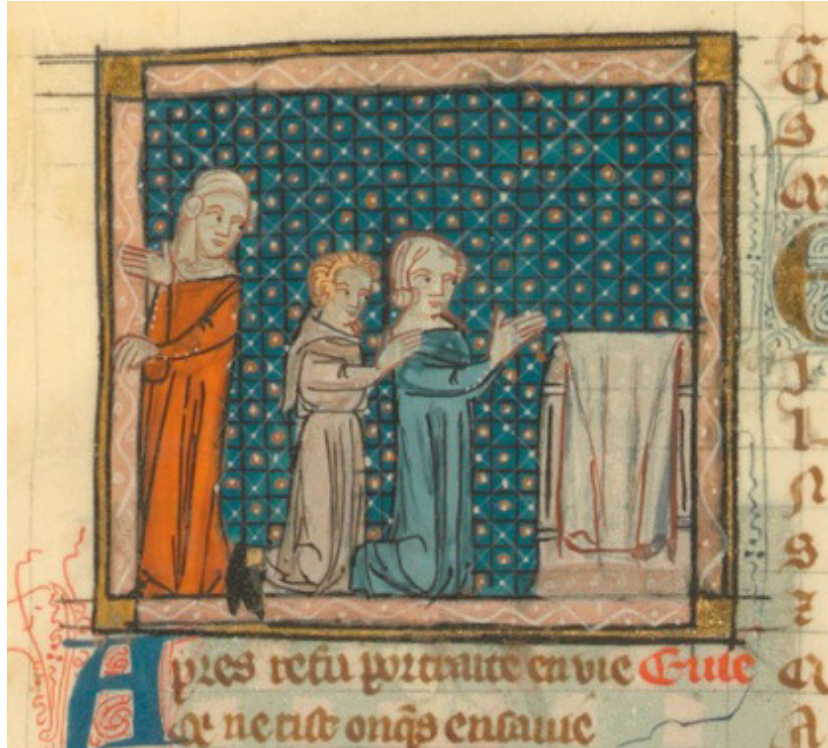 Apres refu portraite envie Enuie
Q̃ ne rist onq̃s ensauie